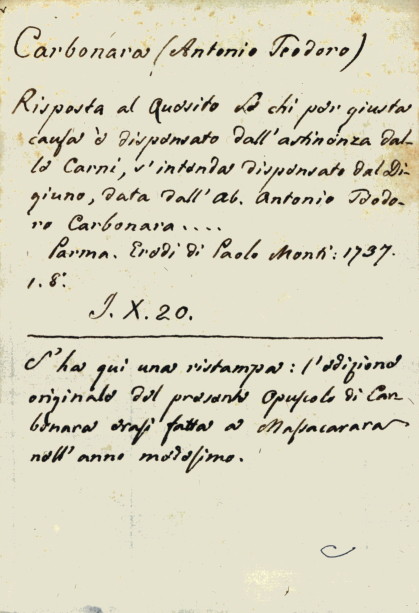 Carbonara (Antonio Teodoro)
Risposta al Quesito Se chi per giusta
causa è dispensato dall'astinenza dal-
le Carni, s'intenda dispensato dal Di-
giuno, data dall'Ab. Antonio Teodo-
ro Carbonara....
Parma. Eredi di Paolo Monti: 1737.
1. 8.°
J. X. 20.
S'ha qui una ristampa: l'edizione
originale del presente Opuscolo di Car-
bonara erasi fatta a Massacarara
nell'anno medesimo.